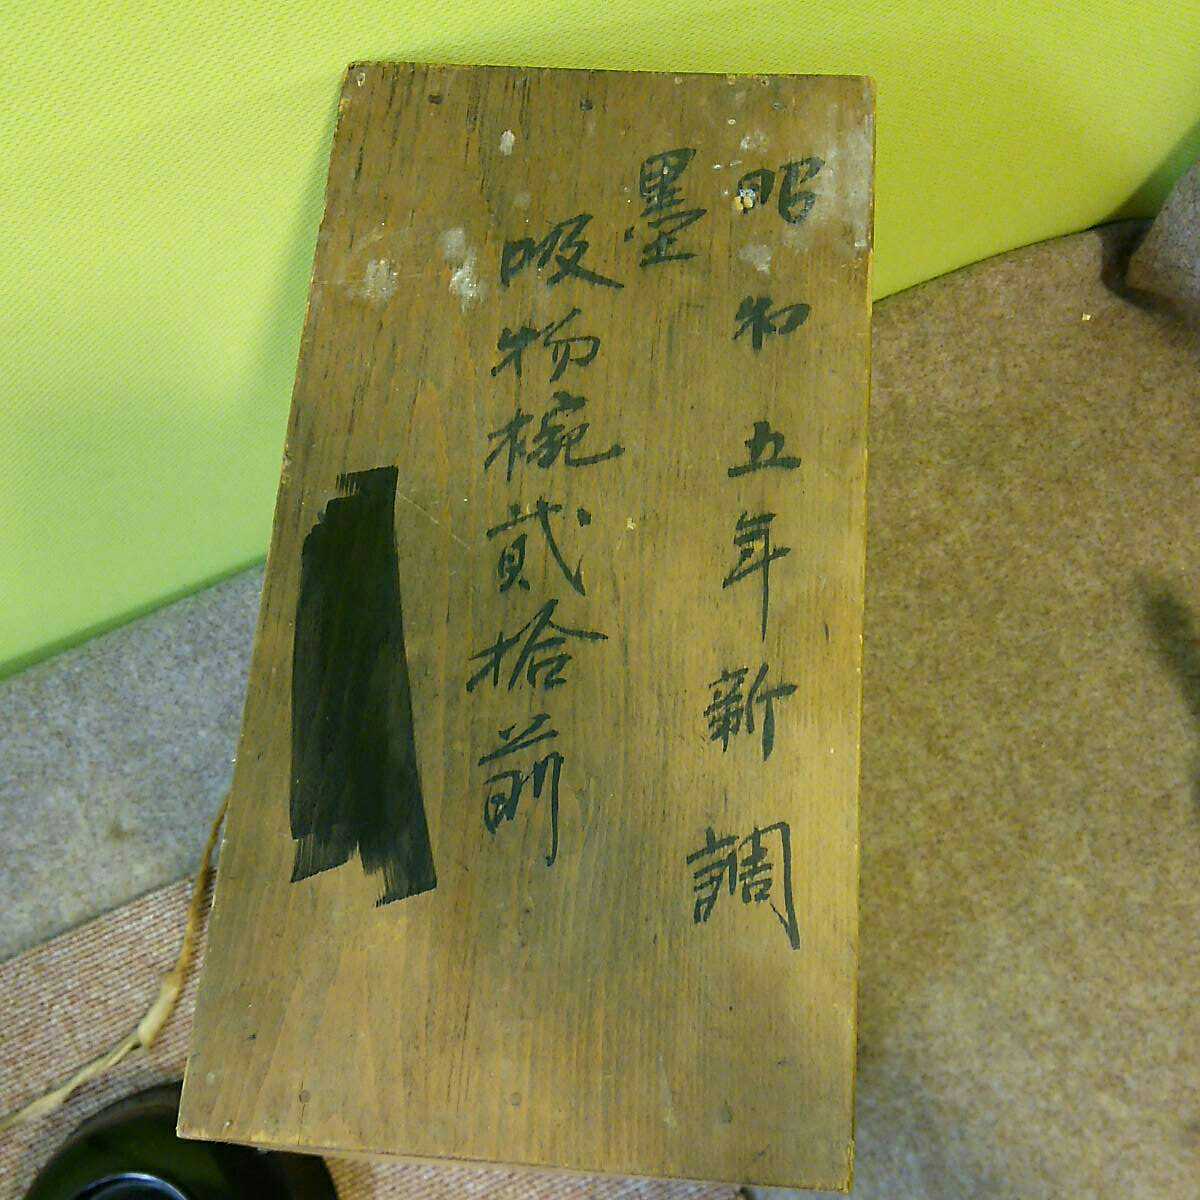 昭和五年新調
墨
吸物椀貳拾前